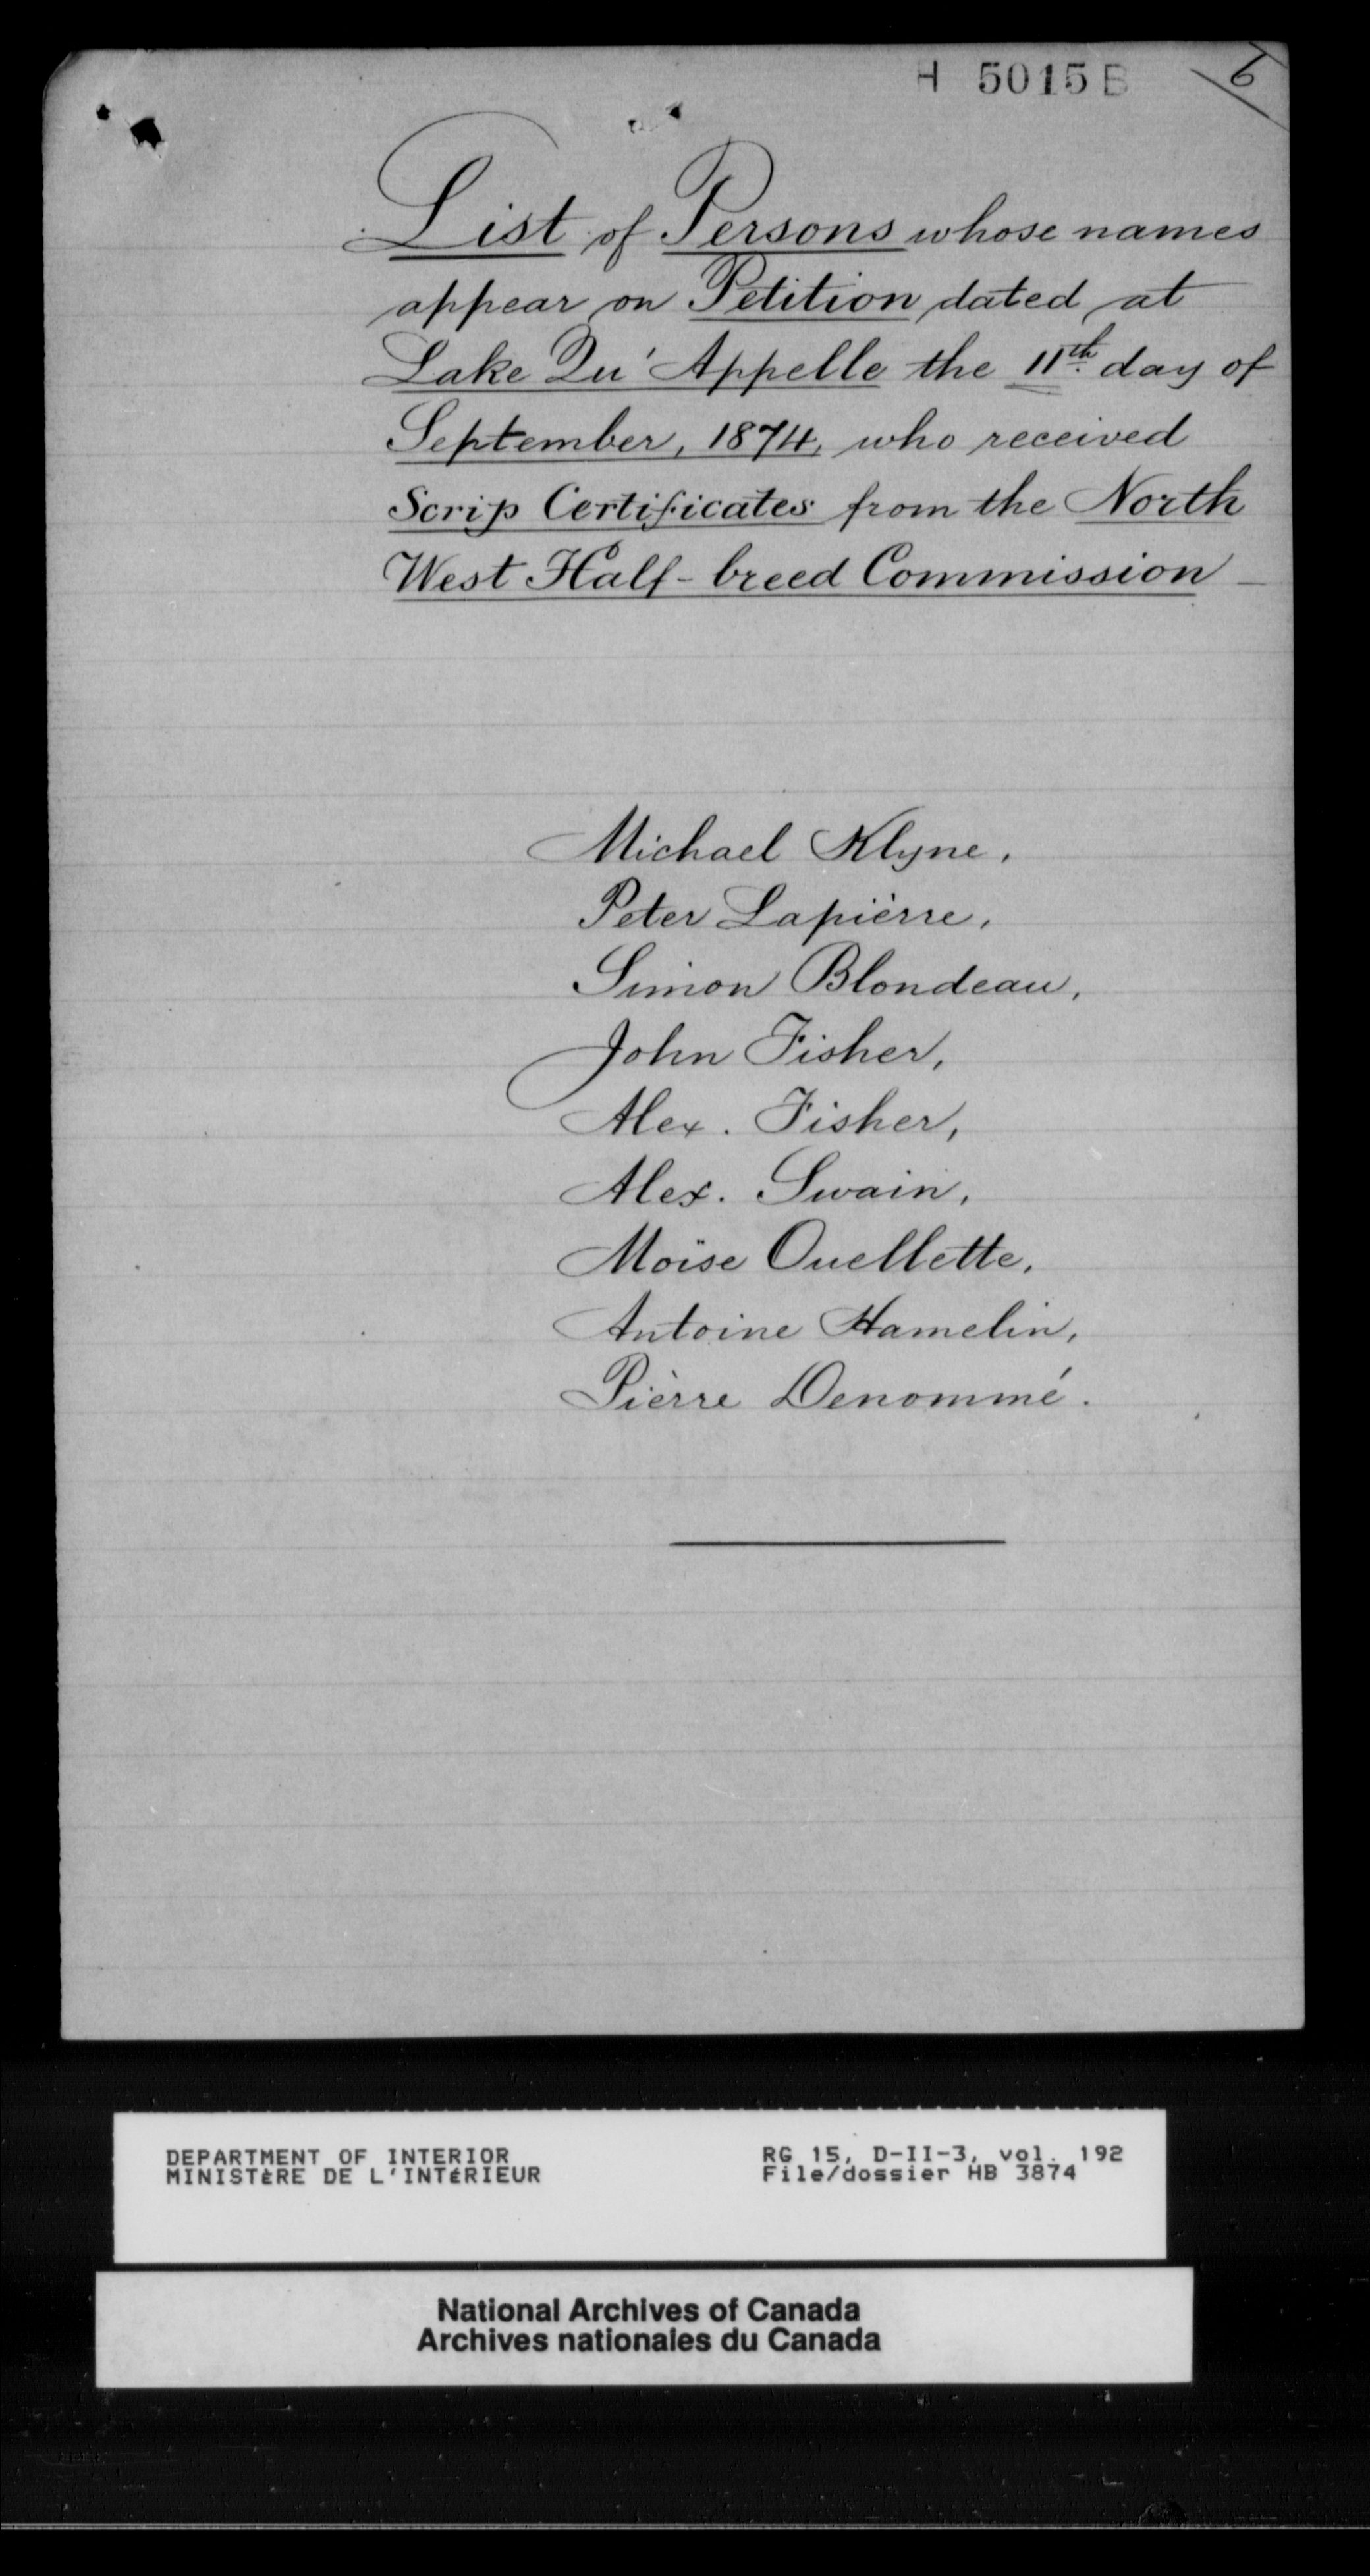 H 5015 B 6
List of Persons whose names
appear on Petition dated at
Lake Qu'Appelle the 11th. day of
September, 1874, who received
Scrip Certificates from the North
West Half-breed Commission
Michael Klyne,
Peter Lapièrre,
Simon Blondeau,
John Fisher,
Alex. Fisher,
Alex. Swain,
Moïse Ouellette,
Antoine Hamelin,
Pièrre Denommé.
DEPARTMENT OF INTERIOR
MINISTÈRE DE L'INTÉRIEUR
RG 15, D-II-3, vol. 192
File/dossier HB 3874
National Archives of Canada
Archives nationales du Canada